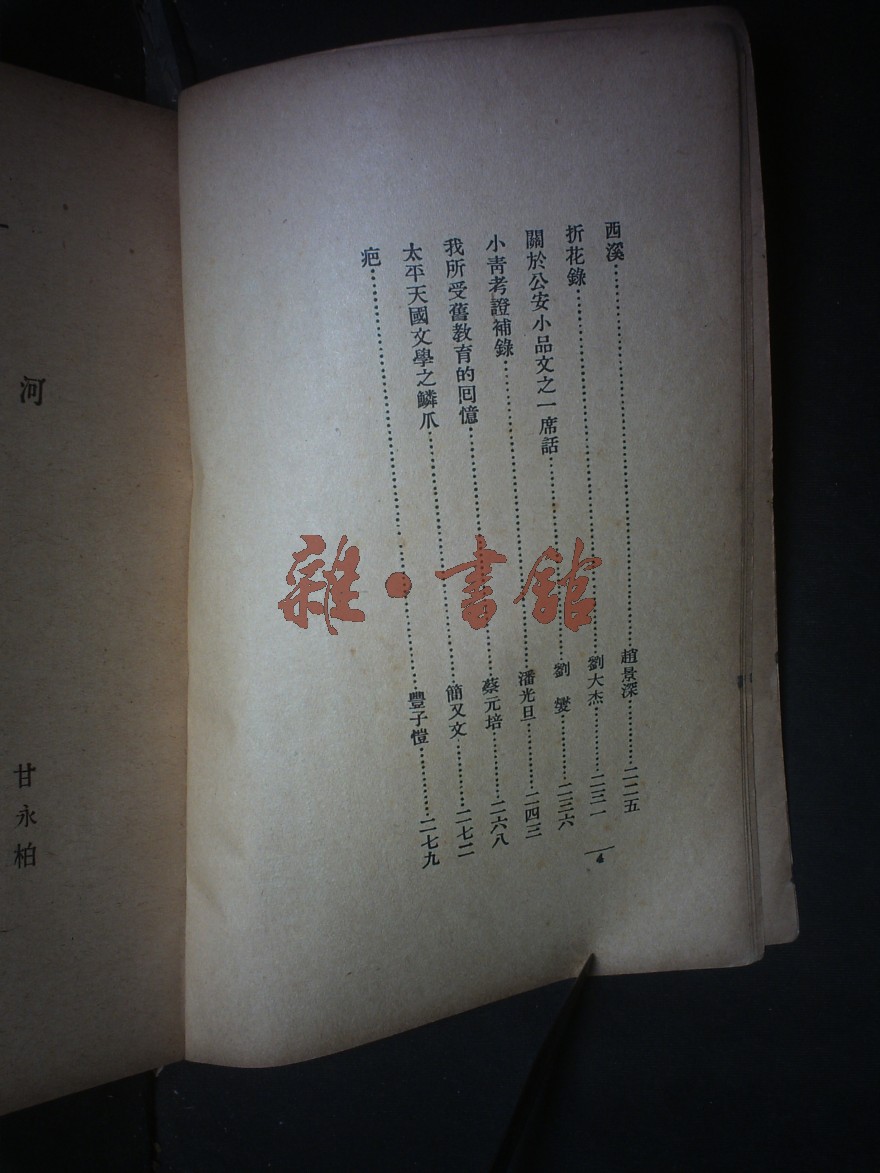 西溪……趙景深……二二五
折花錄……劉大杰……二三一
關於公安小品文之一席話……劉燮……二三六
小青考證補錄……潘光旦……二四三
我所受舊教育的回憶……蔡元培……二六八
太平天國文學之鱗爪……簡又文……二七二
疤……豐子愷……二七九
4
河
甘永柏
雜·書館